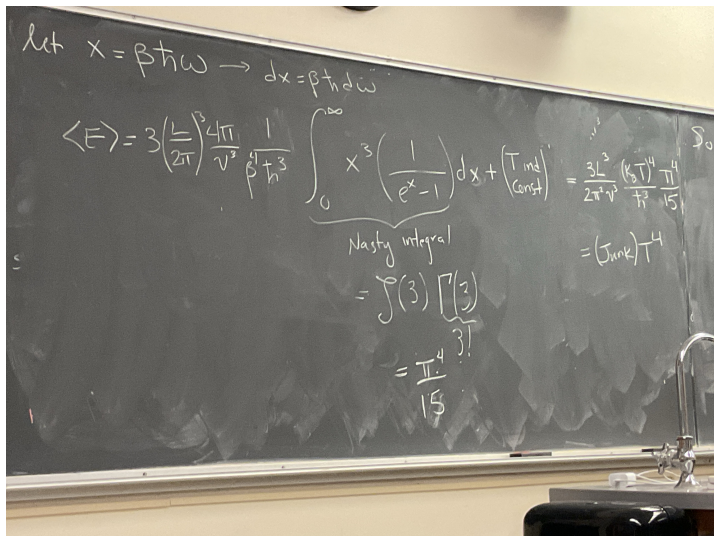 let x = βħω → dx = βħdω
<E> = 3(L/2π)³ 4π/v³ 1/β⁴ħ³ ∫₀^∞ x³ (1/(eˣ-1)) dx + (T ind const) = 3L³/2π²v³ (k_BT)⁴/ħ³ π⁴/15
Nasty integral
= (Junk)T⁴
= ζ(3) Γ(3)
3!
= π⁴/15
So